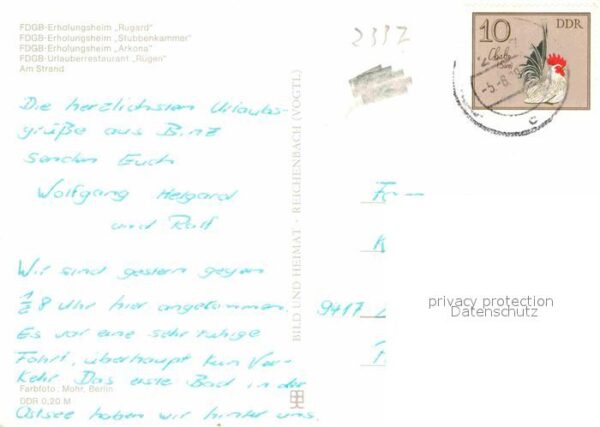 FDGB-Erholungsheim „Rugard"
FDGB-Erholungsheim „Stubbenkammer"
FDGB-Erholungsheim „Arkona"
FDGB-Urlauberrestaurant „Rügen"
Am Strand
Die herzlichsten Urlaubs-
grüße aus Binz
senden Euch
Wolfgang Helgard
und Ralf
Wir sind gestern gegen
1/2 8 Uhr hier angekommen.
Es war eine sehr ruhige
Fahrt, überhaupt kein Ver-
kehr. Das erste Bad in der
Ostsee haben wir hinter uns.
Farbfoto: Mohr, Berlin
DDR 0,20 M
BILD UND HEIMAT · REICHENBACH (VOGTL)
2337
10 DDR
-5.-6.
c
Fam
K
9417
privacy protection
Datenschutz